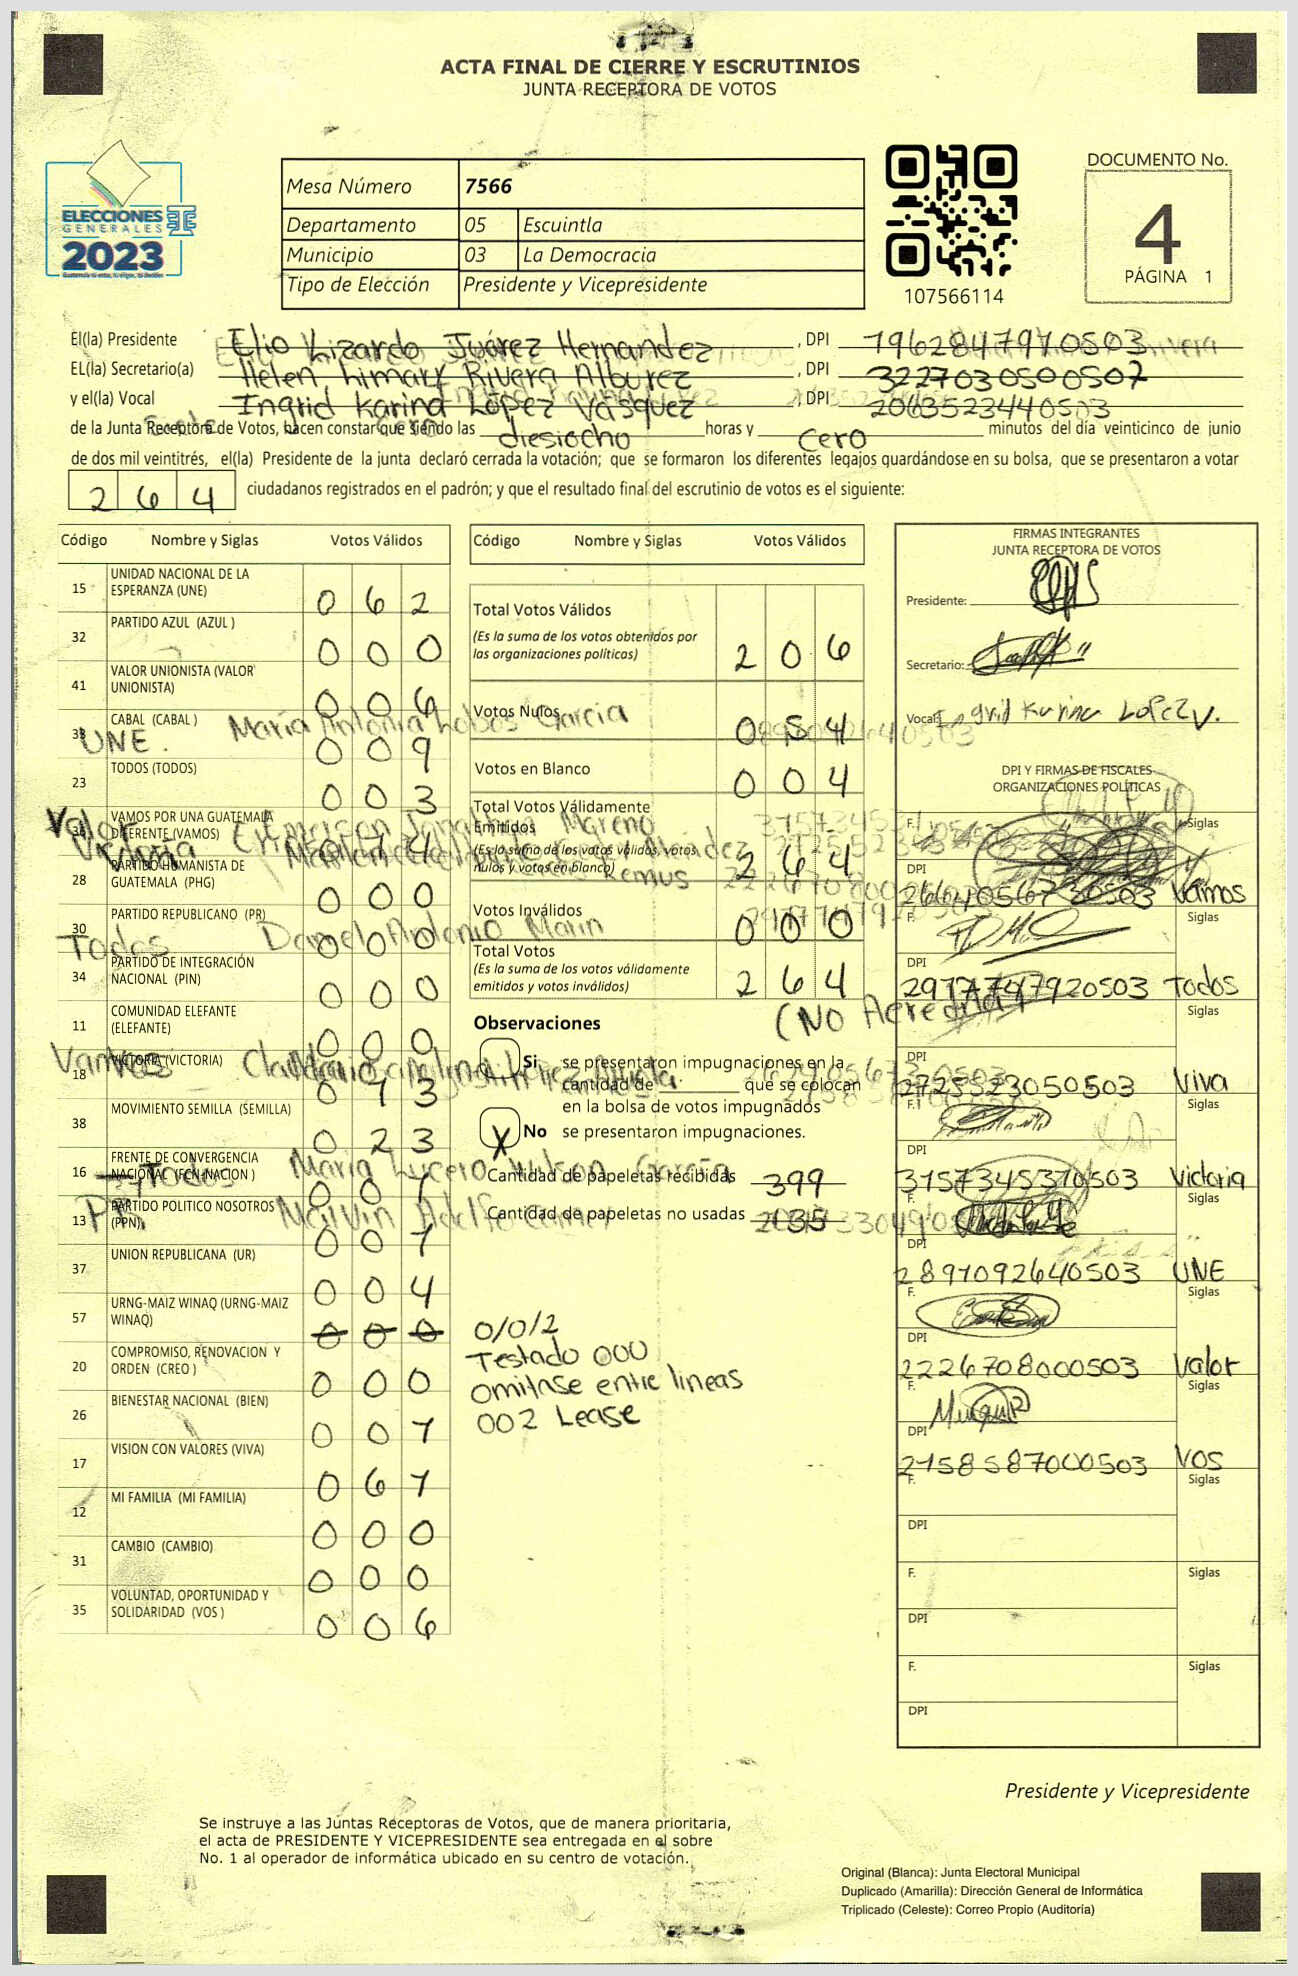 ACTA FINAL DE CIERRE Y ESCRUTINIOS
JUNTA RECEPTORA DE VOTOS
ELECCIONES
GENERALES
2023
Mesa Número 7566
Departamento 05 Escuintla
Municipio 03 La Democracia
Tipo de Elección Presidente y Vicepresidente
107566114
DOCUMENTO No.
4
PÁGINA 1
El(la) Presidente Elio Lizardo Juárez Hernandez, DPI 1962847910503
EL(la) Secretario(a) Helen Limary Rivera Alburez, DPI 3227030500507
y el(la) Vocal Ingrid Karina López Vásquez, DPI 2063523440503
de la Junta Receptora de Votos, hacen constar que siendo las diesiocho horas y cero minutos del día veinticinco de junio
de dos mil veintitrés, el(la) Presidente de la junta declaró cerrada la votación; que se formaron los diferentes legajos guardándose en su bolsa, que se presentaron a votar
264 ciudadanos registrados en el padrón; y que el resultado final del escrutinio de votos es el siguiente:
Código Nombre y Siglas Votos Válidos
15 UNIDAD NACIONAL DE LA ESPERANZA (UNE) 0 6 2
32 PARTIDO AZUL (AZUL ) 0 0 0
41 VALOR UNIONISTA (VALOR UNIONISTA) 0 0 6
CABAL (CABAL ) 0 0 9
23 TODOS (TODOS) 0 0 3
VAMOS POR UNA GUATEMALA DIFERENTE (VAMOS)
28 PARTIDO HUMANISTA DE GUATEMALA (PHG) 0 0 0
30 PARTIDO REPUBLICANO (PR) 0 0 0
34 PARTIDO DE INTEGRACIÓN NACIONAL (PIN) 0 0 0
11 COMUNIDAD ELEFANTE (ELEFANTE) 0 0 0
18 VICTORIA (VICTORIA) 0 1 3
38 MOVIMIENTO SEMILLA (SEMILLA) 0 2 3
16 FRENTE DE CONVERGENCIA NACIONAL (FCN-NACION ) 0 0 1
13 PARTIDO POLITICO NOSOTROS (PPN) 0 0 1
37 UNION REPUBLICANA (UR) 0 0 4
57 URNG-MAIZ WINAQ (URNG-MAIZ WINAQ) 0 0 0
20 COMPROMISO, RENOVACION Y ORDEN (CREO ) 0 0 0
26 BIENESTAR NACIONAL (BIEN) 0 0 1
17 VISION CON VALORES (VIVA) 0 6 1
12 MI FAMILIA (MI FAMILIA) 0 0 0
31 CAMBIO (CAMBIO) 0 0 0
35 VOLUNTAD, OPORTUNIDAD Y SOLIDARIDAD (VOS ) 0 0 6
Código Nombre y Siglas Votos Válidos
Total Votos Válidos
(Es la suma de los votos obtenidos por
las organizaciones políticas) 2 0 6
Votos Nulos 0 5 4
Votos en Blanco 0 0 4
Total Votos Válidamente
Emitidos
(Es la suma de los votos válidos, votos
nulos y votos en blanco) 2 6 4
Votos Inválidos 0 0 0
Total Votos
(Es la suma de los votos válidamente
emitidos y votos inválidos) 2 6 4
Observaciones
Si se presentaron impugnaciones en la
cantidad de ______ que se colocan
en la bolsa de votos impugnados
X No se presentaron impugnaciones.
Cantidad de papeletas recibidas 399
Cantidad de papeletas no usadas
0/0/2
Testado 000
omitase entre lineas
002 Lease
UNE. María Antonia Lobos Garcia
Valor
Victoria
Todos Daniel Antonio Marin
Vamos
Todos Maria Lucero
FIRMAS INTEGRANTES
JUNTA RECEPTORA DE VOTOS
Presidente:
Secretario:
Vocal: Ingrid Karina López V.
DPI Y FIRMAS DE FISCALES
ORGANIZACIONES POLÍTICAS
F. Siglas
DPI 2640567320503 Vamos
F. Siglas
DPI 2917747920503 Todos
(No Acredita)
Siglas
DPI 2725523050503 Viva
F. Siglas
DPI 3157345370503 Victoria
F. Siglas
DPI 2891092640503 UNE
F. Siglas
DPI 2226708000503 Valor
F. Siglas
DPI 2158587000503 VOS
F. Siglas
DPI
F. Siglas
DPI
F. Siglas
DPI
Presidente y Vicepresidente
Se instruye a las Juntas Receptoras de Votos, que de manera prioritaria,
el acta de PRESIDENTE Y VICEPRESIDENTE sea entregada en el sobre
No. 1 al operador de informática ubicado en su centro de votación.
Original (Blanca): Junta Electoral Municipal
Duplicado (Amarilla): Dirección General de Informática
Triplicado (Celeste): Correo Propio (Auditoría)